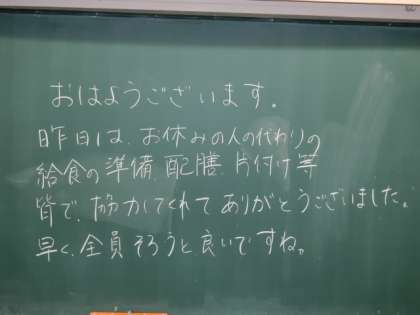 おはようございます。
昨日は、お休みの人の代わりの
給食の準備、配膳、片付け等
皆で、協力してくれてありがとうございました。
早く、全員そろうと良いですね。